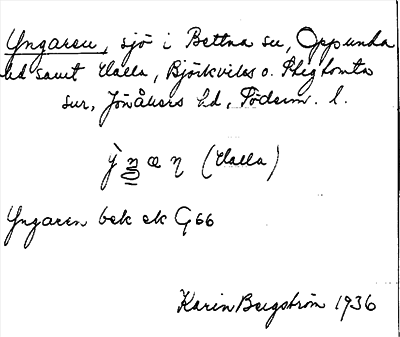 Yngaren, sjö i Bettna sn, Oppunda
hd samt Halla, Björkviks o. Stigtomta
snr, Jönåkers hd, Söderm. l.
(Halla)
Yngaren bek ek G66
Karin Bergström 1936